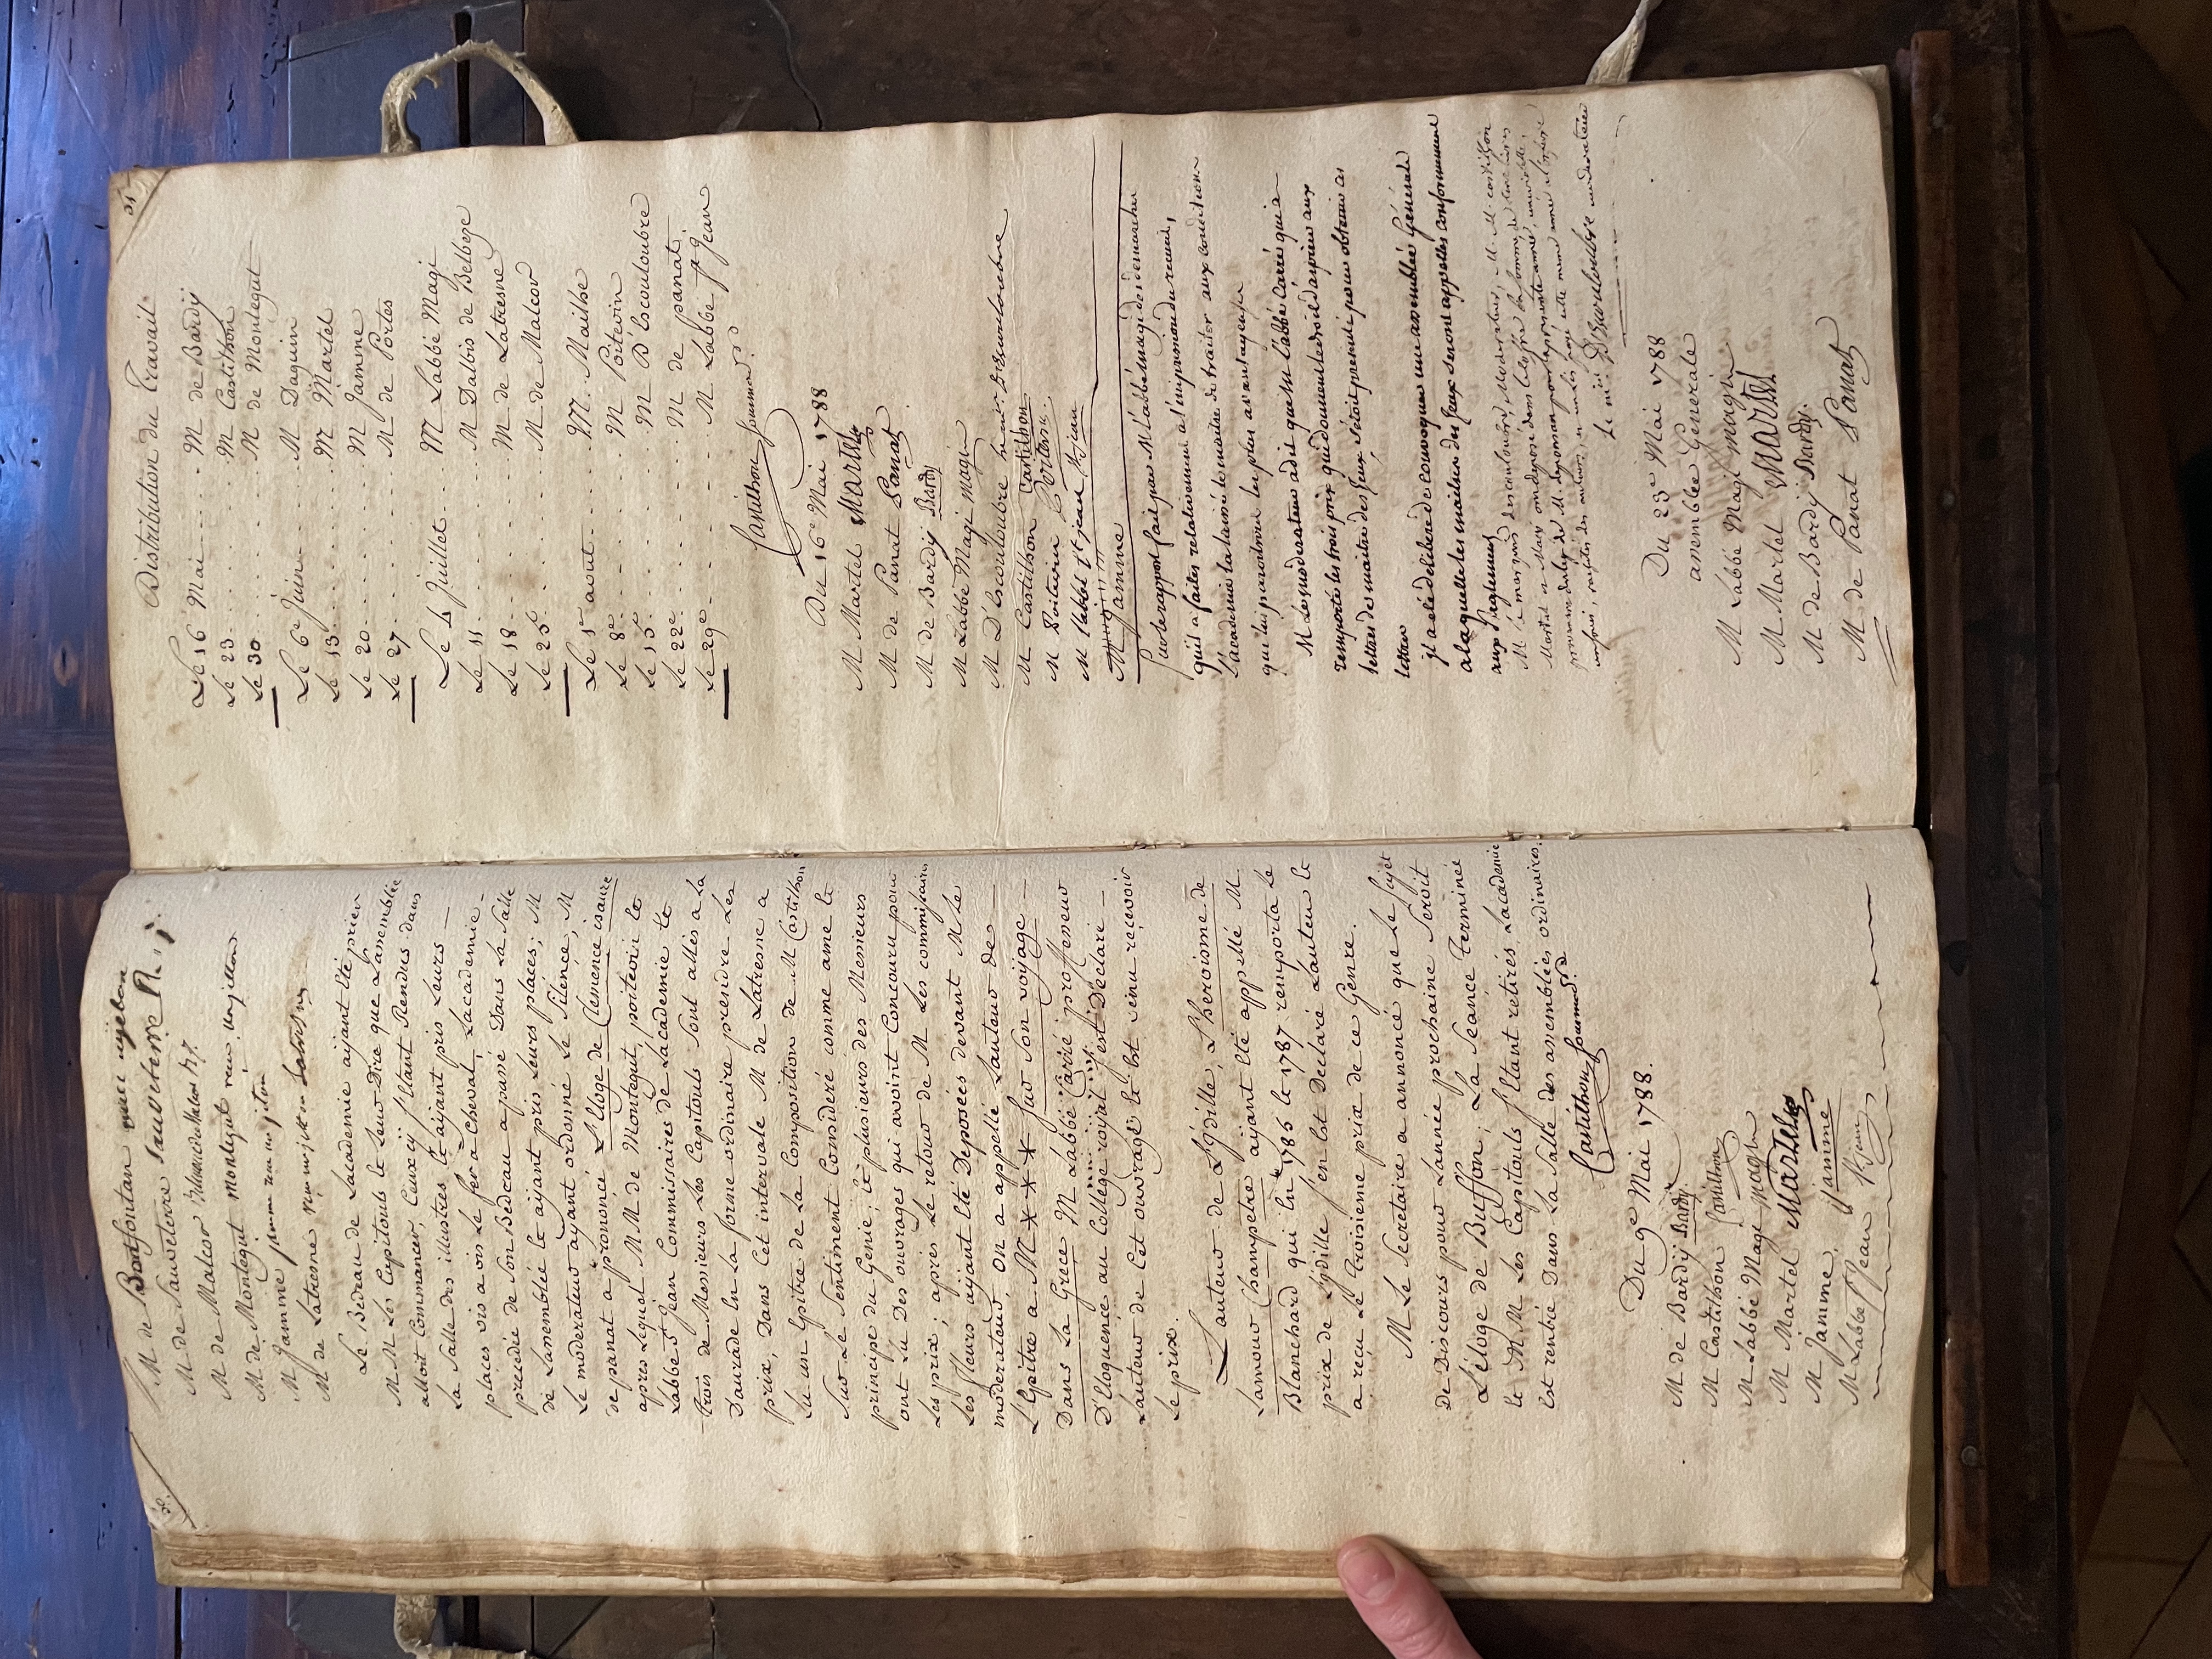 M de Bardfontan
M de Sauveterre Sauveterre
M de Malcor
M de Montegut Montegut
M Jamme
M de Latresne
Le Bedeau de Lacademie aÿant êté prier
M M Les Capitouls et leur Dire que Lassemblée
alloit Commancer, Ceuxcÿ s'Etant Rendus dans
La Salle des illustres et aÿant pris Leurs
places vis a vis Le fer a Cheval, Lacademie
precedée de Son Bedeau a passé Dans La Salle
de Lassemblée et aÿant pris Leurs places, M
Le moderateur aÿant ordonné Le Silence, M
de panat a prononcé L'Eloge de Clemence isaure
apres Lequel M M de Montegut, poitevin et
Labbé St Jean Commissaires de Lacademie et
trois de Messieurs Les Capitouls Sont allés a La
Daurade En La forme ordinaire prendre Les
prix, Dans Cet intervale M de Latresne a
Lu un Epitre de La Composition de M Castilhon
Sur Le Sentiment Consideré comme ame et
principe du Genie; et plusieurs des Messieurs
ont Lû Des ouvrages qui avoint Concouru pour
Les prix; après Le retour de M Les commissaires
Les fleurs aÿant Eté Deposées devant M Le
moderateur, on a appellé Lauteur de
L'Epitre a M * * * Sur Son voÿage
Dans La Grece M Labbé Carré proffesseur
D'Eloquence au College royal s'est Declaré
Lauteur de Cet ouvrage et Est venu recevoir
Le prix.
Lauteur de L'idille, L'heroisme de
Lamour Champetre aÿant Eté appellé M
Blanchard qui En 1786 et 1787 remporta Le
prix de L'idille s'en Est Declaré Lauteur et
a reçu Le troisieme prix de ce Genre.
M Le Secretaire a annoncé que Le Sujet
de Discours pour Lannée prochaine Seroit
L'éloge de Buffon; La Seance Terminée
et M M Les Capitouls s'Etant retirés Lacademie
Est rentrée Dans La Salle des assemblées ordinaires.
Castilhon
Du 9e Mai 1788.
M de Bardÿ Bardy
M Castilhon Castilhon
M Labbé Magi magi
M Martel Martel
M Jamme Jamme
M Labbé St Jean St jean
31
Distribution du Travail
Le 16 Mai ... M de Bardÿ
Le 23 ... M Castilhon
Le 30 ... M de Montegut
Le 6e Juin ... M Daguin
Le 13 ... M Martel
Le 20 ... M Jamme
Le 27 ... M de Portes
Le 4 Juillet ... M Labbé Magi
Le 11 ... M Dalbis de Belbeze
Le 18 ... M de Latresne
Le 25 ... M de Malcor
Le 1er aout ... M. Mailhe
Le 8e ... M Poitevin
Le 15e ... M D'Escouloubre
Le 22e ... M de panat
Le 29e ... M Labbé St Jean
Castilhon
Du 16e Mai 1788
M Martel Martel
M de Panat Panat
M de Bardÿ Bardy
M Labbé Magi magi
M D'Escouloubre
M Castilhon Castilhon
M Poitevin Poitevin
M l'abbé St jean St jean
M Jamme
Sur le rapport fait par M l'abbé magi des demarches
qu'il a faites relativement a l'impression du recueil,
l'academie l'a laissé le maitre de traiter aux conditions
que lui paroitroit les plus avantageuses
M Le moderateur a dit que M l'abbé Carré qui a
remporté les trois prix qui donnent le droit d'aspirer aux
lettres de maitre des jeux s'étoit presenté pour obtenir ces
lettres
il a été deliberé de convoquer une assemblée Générale
a laquelle les maitres des Jeux seront appellés conformement
aux reglemens
Du 23e Mai 1788
assemblée Generale
M Labbé Magi magi
M Martel Martel
M de Bardÿ Bardy
M de Panat Panat